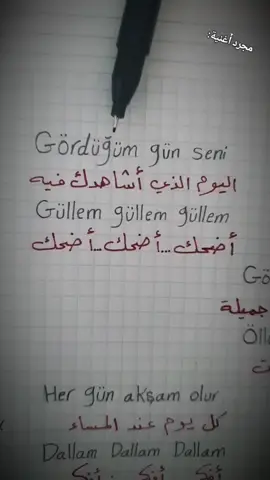 مجرد أغنية:
Gördüğüm gün seni
اليوم الذي أشاهدك فيه
Güllem güllem güllem
أضحك...أضحك...أضحك
Gö
جميلة
Öll
ت
Her gün akşam olur
كل يوم عند المساء
Dallam Dallam Dallam